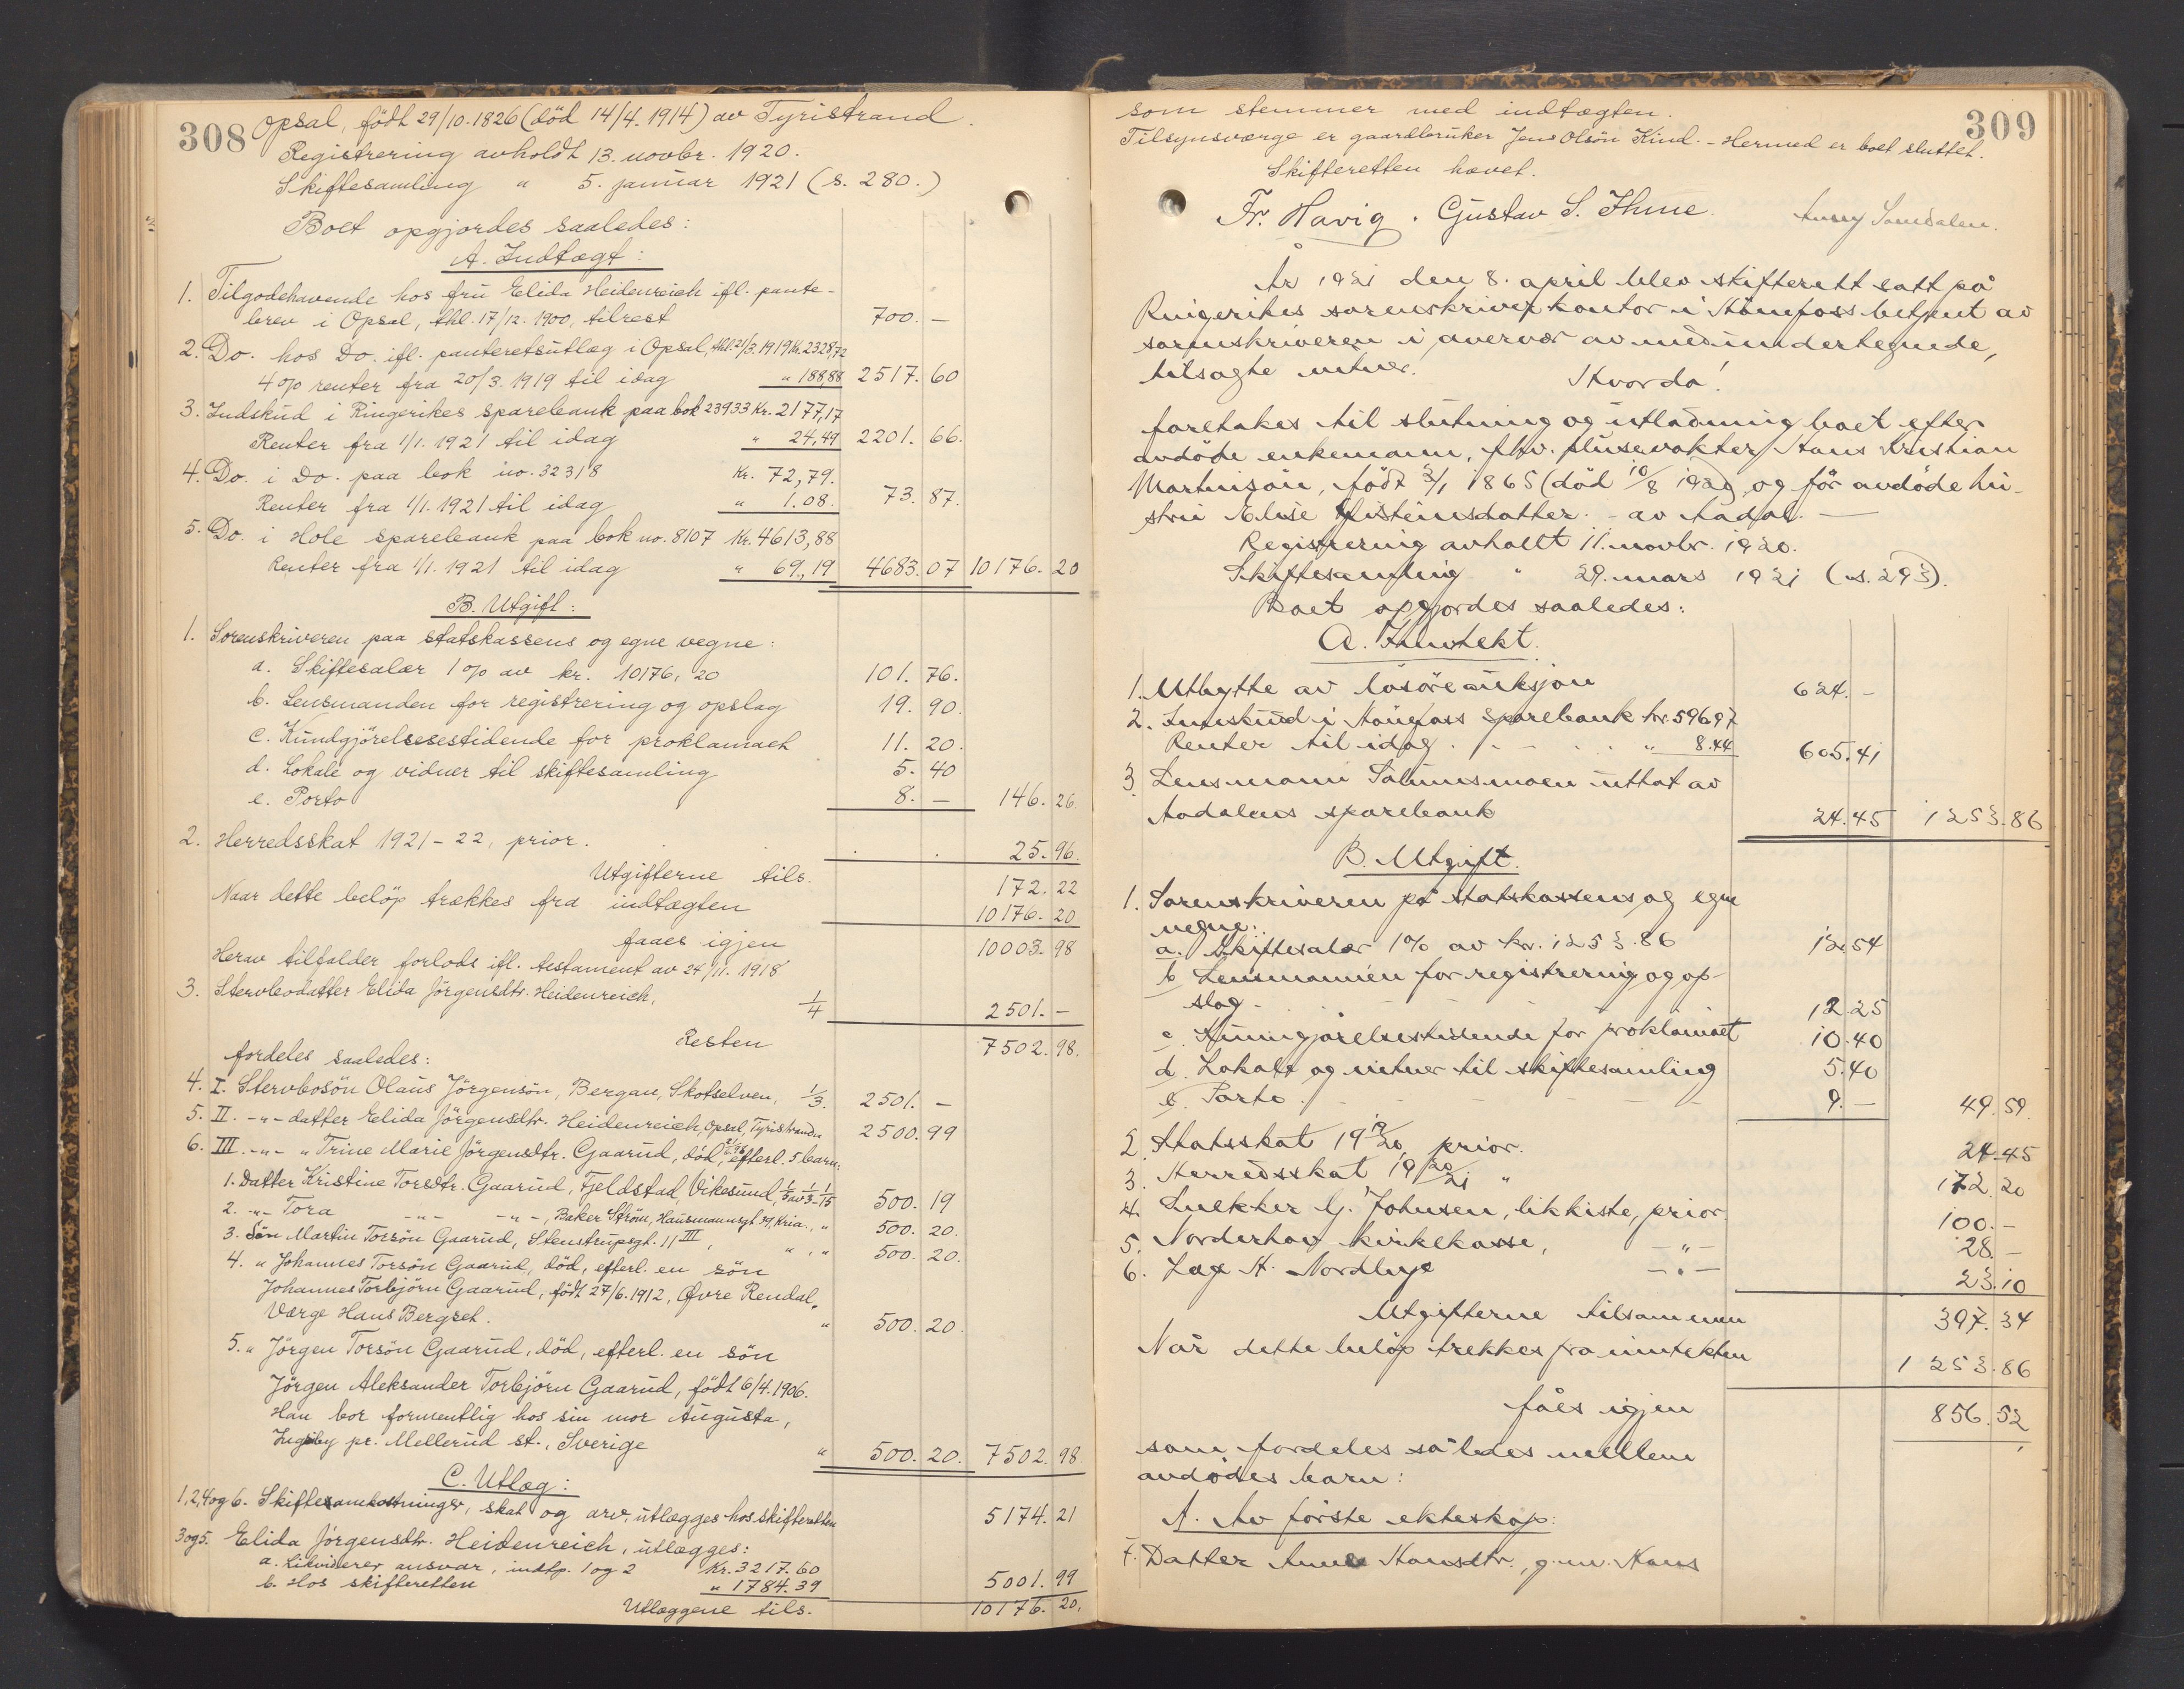 308
Opsal, född 29/10.1826 (död 14/4.1914) av Tyristrand.
Registrering avholdt 13. novbr. 1920.
Skiftesamling " 5. januar 1921 (s. 280.)
Boet opgjordes saaledes:
A. Indtægt:
1. Tilgodehavende hos fru Elida Heidenreich ifl. pante-
brev i Opsal, thl. 17/12. 1900, tilrest 700. —
2. Do. hos Do. ifl. panteretsutlæg i Opsal, thl. 21/3. 1919 Kr. 2328,72
4% renter fra 20/3. 1919 til idag " 188,88 2517. 60
3. Indskud i Ringerikes sparebank paa bok 23933 Kr. 2177,17
Renter fra 1/1. 1921 til idag " 24,49 2201. 66.
4. Do. i Do. paa bok no. 32318 Kr. 72,79.
Renter fra 1/1. 1921 til idag " 1.08. 73. 87.
5. Do. i Hole sparebank paa bok no. 8107 Kr. 4613,88
Renter fra 1/1. 1921 til idag " 69,19 4683. 07 10176. 20
B. Utgift:
1. Sorenskriveren paa statskassens og egne vegne:
a. Skiftesalær 1% av kr. 10176, 20 101. 76.
b. Lensmanden for registrering og opslag 19. 90.
c. Kundgjörelsesestidende for proklamaet 11. 20.
d. Lokale og vidner til skiftesamling 5. 40
e. Porto 8. — 146. 26.
2. Herredsskat 1921-22, prior. 25. 96.
Utgifterne tils. 172. 22
Naar dette belöp trækkes fra indtægten 10176. 20
faaes igjen 10003. 98
Herav tilfalder forlods ifl. testament av 24/11. 1918
3. Stervbodatter Elida Jörgensdtr. Heidenreich, 1/4 2501. —
Resten 7502. 98.
fordeles saaledes:
4. I. Stervbosön Olaus Jörgensön, Bergan, Skotselven, 1/3. 2501. —
5. II. -"- datter Elida Jörgensdtr. Heidenreich, Opsal, Tyristranden 2500. 99
6. III. -"- " Trine Marie Jörgensdtr. Gaarud, död, efterl. 5 barn:
1. Datter Kristine Torsdtr. Gaarud, Fjeldstad, Vikesund, 1/5 av 1/3 = 1/15 500. 19
2. -"- Tora -"- -"-, Baker Ström, Hausmannsgt. 39, Kria., " 500. 20.
3. Sön Martin Torsön Gaarud, Stenstrupsgt. 11 III, " , " 500. 20.
4. " Johannes Torsön Gaarud, död, efterl. en sön
Johannes Torbjörn Gaarud, född 27/6. 1912, Øvre Rendal,
Værge Hans Bergset. " 500. 20.
5. " Jörgen Torsön Gaarud, död, efterl. en sön
Jörgen Aleksander Torbjörn Gaarud, född 6/4. 1906.
Han bor formentlig hos sin mor Augusta,
pr. Mellerud st., Sverige " 500. 20. 7502. 98.
C. Utlæg:
1, 2, 4 og 6. Skiftesomkostninger, skat og arv, utlægges hos skifteretten 5174. 21
3 og 5. Elida Jörgensdtr. Heidenreich, utlægges:
a. Likviderer ansvar, indtp. 1 og 2 Kr. 3217. 60
b. Hos skifteretten " 1784. 39 5001. 99
Utlæggene tils. 10176. 20.
309
som stemmer med indtægten.
Tilsynsværge er gaardbruker Jens Olsön Kind. - Hermed er boet sluttet.
Skifteretten hævet.
Fr. Havig. Gustav S. Ihme.
År 1921 den 8. april blev skifterett satt på
Ringerikes sorenskriverkontor i Hönefoss betjent av
sorenskriveren i overvær av medundertegnede,
tilsagte vitner. Hvorda!
foretakes til slutning og utlodning boet efter
avdöde enkemann, fhv. slusevokter Hans Kristian
Martinsön, född 3/1 1865 (död 10/8 1920) og för avdöde hu-
stru Elise Gisteinsdatter. - av Aadal. —
Registrering avholt 11. novbr. 1920.
Skiftesamling " 29. mars 1921 (s. 293).
Boet opgjordes saaledes:
A. Inntekt.
1. Utbytte av lösöreauksjon 624. -
2. Innskud i Hönefoss sparebank kr. 596.97
Renter til idag. " 8.44 605. 41
3. Lensmann utlat av
Aadalens sparebank 24. 45 1253. 86
B. Utgift.
1. Sorenskriveren på statskassens og egne
vegne:
a. Skiftesalær 1% av kr. 1253.86 12. 54
b. Lensmannen for registrering og op-
slag 12. 25
c. Kunngjörelsestidende for proklamaet 10. 40
d. Lokale og vitner til skiftesamling 5. 40
e. Porto 9. — 49. 59.
2. Statsskat 1919/20, prior. 24. 45
3. Herredsskat 1920/21 " 172. 20
4. Snekker G. Johnsen, likkiste, prior. 100. -
5. Norderhov kirkekasse, -"- 28. -
6. Læge H. Nordbye -"- 23. 10
Utgifterne tilsammen 397. 34
Når dette belöp trekkes fra inntekten 1253. 86
fåes igjen 856. 52
som fordeles således mellem
avdödes barn:
A. Av förste ekteskap:
7. Datter Anne Hansdtr., g. m. Hans